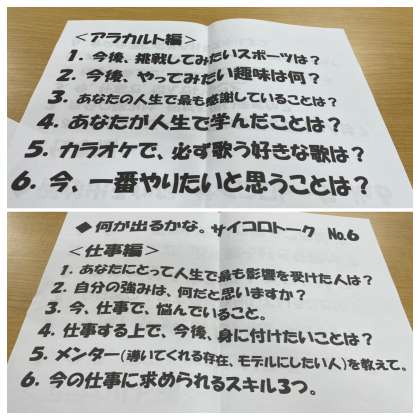 ＜アラカルト編＞
1. 今後、挑戦してみたいスポーツは？
2. 今後、やってみたい趣味は何？
3. あなたの人生で最も感謝していることは？
4. あなたが人生で学んだことは？
5. カラオケで、必ず歌う好きな歌は？
6. 今、一番やりたいと思うことは？
◆何が出るかな。サイコロトーク No.6
＜仕事編＞
1. あなたにとって人生で最も影響を受けた人は？
2. 自分の強みは、何だと思いますか？
3. 今、仕事で、悩んでいること。
4. 仕事する上で、今後、身に付けたいことは？
5. メンター(導いてくれる存在、モデルにしたい人)を教えて。
6. 今の仕事に求められるスキル3つ。